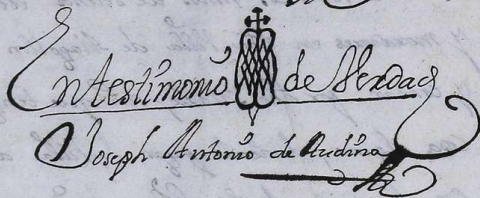 En testimonio de Verdad
Joseph Antonio de Audina